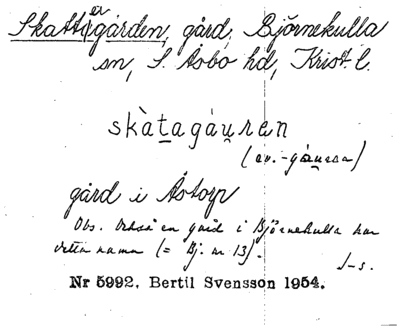 Skattegården, gård, Björnekulla
sn, S. Åsbo hd, Krist. l.
skàtagáu̯ren
(äv. -gáu̯raa)
gård i Åstorp
Obs. Också en gård i Björnekulla har
detta namn (= Bj. nr 13).
J-s.
Nr 5992, Bertil Svensson 1954.